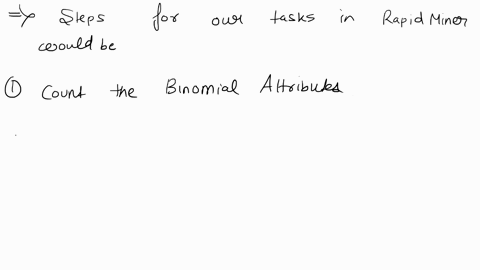 => Steps for our tasks in Rapid Miner
would be
① Count the Binomial Attributes